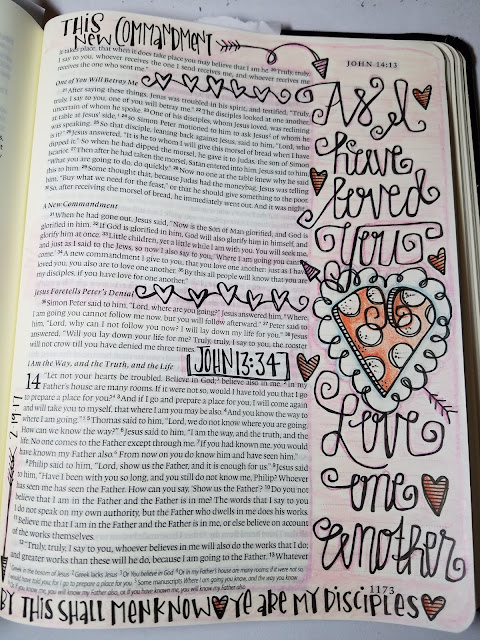 THIS
NEW COMMANDMENT
JOHN 14:13
it takes place, that when it does take place you may believe that I am he. 20 Truly, truly,
I say to you, whoever receives the one I send receives me, and whoever receives
me receives the one who sent me."
One of You Will Betray Me
21 After saying these things, Jesus was troubled in his spirit, and testified, "Truly,
truly, I say to you, one of you will betray me." 22 The disciples looked at one another,
uncertain of whom he spoke. 23 One of his disciples, whom Jesus loved, was reclining
at table at Jesus' side, 24 so Simon Peter motioned to him to ask Jesus of whom he
was speaking. 25 So that disciple, leaning back against Jesus, said to him, "Lord, who
is it?" 26 Jesus answered, "It is he to whom I will give this morsel of bread when I have
dipped it." So when he had dipped the morsel, he gave it to Judas, the son of Simon
Iscariot. 27 Then after he had taken the morsel, Satan entered into him. Jesus said to him,
"What you are going to do, do quickly." 28 Now no one at the table knew why he said
this to him. 29 Some thought that, because Judas had the moneybag, Jesus was telling
him, "Buy what we need for the feast," or that he should give something to the poor.
30 So, after receiving the morsel of bread, he immediately went out. And it was night.
A New Commandment
31 When he had gone out, Jesus said, "Now is the Son of Man glorified, and God is
glorified in him. 32 If God is glorified in him, God will also glorify him in himself, and
glorify him at once. 33 Little children, yet a little while I am with you. You will seek me,
and just as I said to the Jews, so now I also say to you, 'Where I am going you cannot
come.' 34 A new commandment I give to you, that you love one another: just as I have
loved you, you also are to love one another. 35 By this all people will know that you are
my disciples, if you have love for one another."
Jesus Foretells Peter's Denial
36 Simon Peter said to him, "Lord, where are you going?" Jesus answered him, "Where
I am going you cannot follow me now, but you will follow afterward." 37 Peter said to
him, "Lord, why can I not follow you now? I will lay down my life for you." 38 Jesus
answered, "Will you lay down your life for me? Truly, truly, I say to you, the rooster
will not crow till you have denied me three times.
JOHN 13:34
I Am the Way, and the Truth, and the Life
14 "Let not your hearts be troubled. Believe in God; believe also in me. 2 In my
Father's house are many rooms. If it were not so, would I have told you that I go
to prepare a place for you? 3 And if I go and prepare a place for you, I will come again
and will take you to myself, that where I am you may be also. 4 And you know the way
to where I am going." 5 Thomas said to him, "Lord, we do not know where you are going.
How can we know the way?" 6 Jesus said to him, "I am the way, and the truth, and the
life. No one comes to the Father except through me. 7 If you had known me, you would
have known my Father also. From now on you do know him and have seen him."
8 Philip said to him, "Lord, show us the Father, and it is enough for us." 9 Jesus said
to him, "Have I been with you so long, and you still do not know me, Philip? Whoever
has seen me has seen the Father. How can you say, 'Show us the Father'? 10 Do you not
believe that I am in the Father and the Father is in me? The words that I say to you
I do not speak on my own authority, but the Father who dwells in me does his works.
11 Believe me that I am in the Father and the Father is in me, or else believe on account
of the works themselves.
12 "Truly, truly, I say to you, whoever believes in me will also do the works that I do;
and greater works than these will he do, because I am going to the Father. 13 Whatever
1173
As I
have
loved
you
Love
one
another
BY THIS SHALL MEN KNOW YE ARE MY DISCIPLES